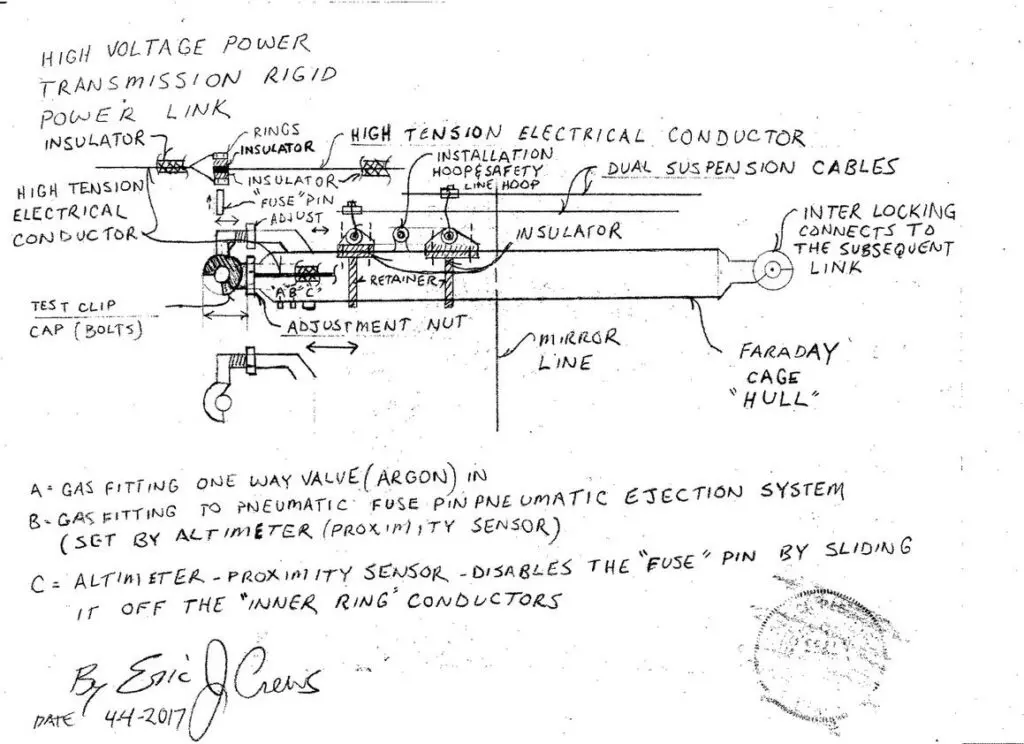 HIGH VOLTAGE POWER
TRANSMISSION RIGID
POWER LINK
INSULATOR
RINGS
INSULATOR
HIGH TENSION ELECTRICAL CONDUCTOR
INSTALLATION
HOOP & SAFETY
LINE HOOP
DUAL SUSPENSION CABLES
HIGH TENSION
ELECTRICAL
CONDUCTOR
INSULATOR
"FUSE" PIN
ADJUST
INSULATOR
INTER LOCKING
CONNECTS TO
THE SUBSEQUENT
LINK
RETAINER
"A" "B" "C"
TEST CLIP
CAP (BOLTS)
ADJUSTMENT NUT
MIRROR
LINE
FARADAY
CAGE
"HULL"
A = GAS FITTING ONE WAY VALVE (ARGON) IN
B = GAS FITTING TO PNEUMATIC FUSE PIN PNEUMATIC EJECTION SYSTEM
(SET BY ALTIMETER (PROXIMITY SENSOR)
C = ALTIMETER - PROXIMITY SENSOR - DISABLES THE "FUSE" PIN BY SLIDING
IT OFF THE "INNER RING" CONDUCTORS
By Eric J Crews
DATE 4-4-2017